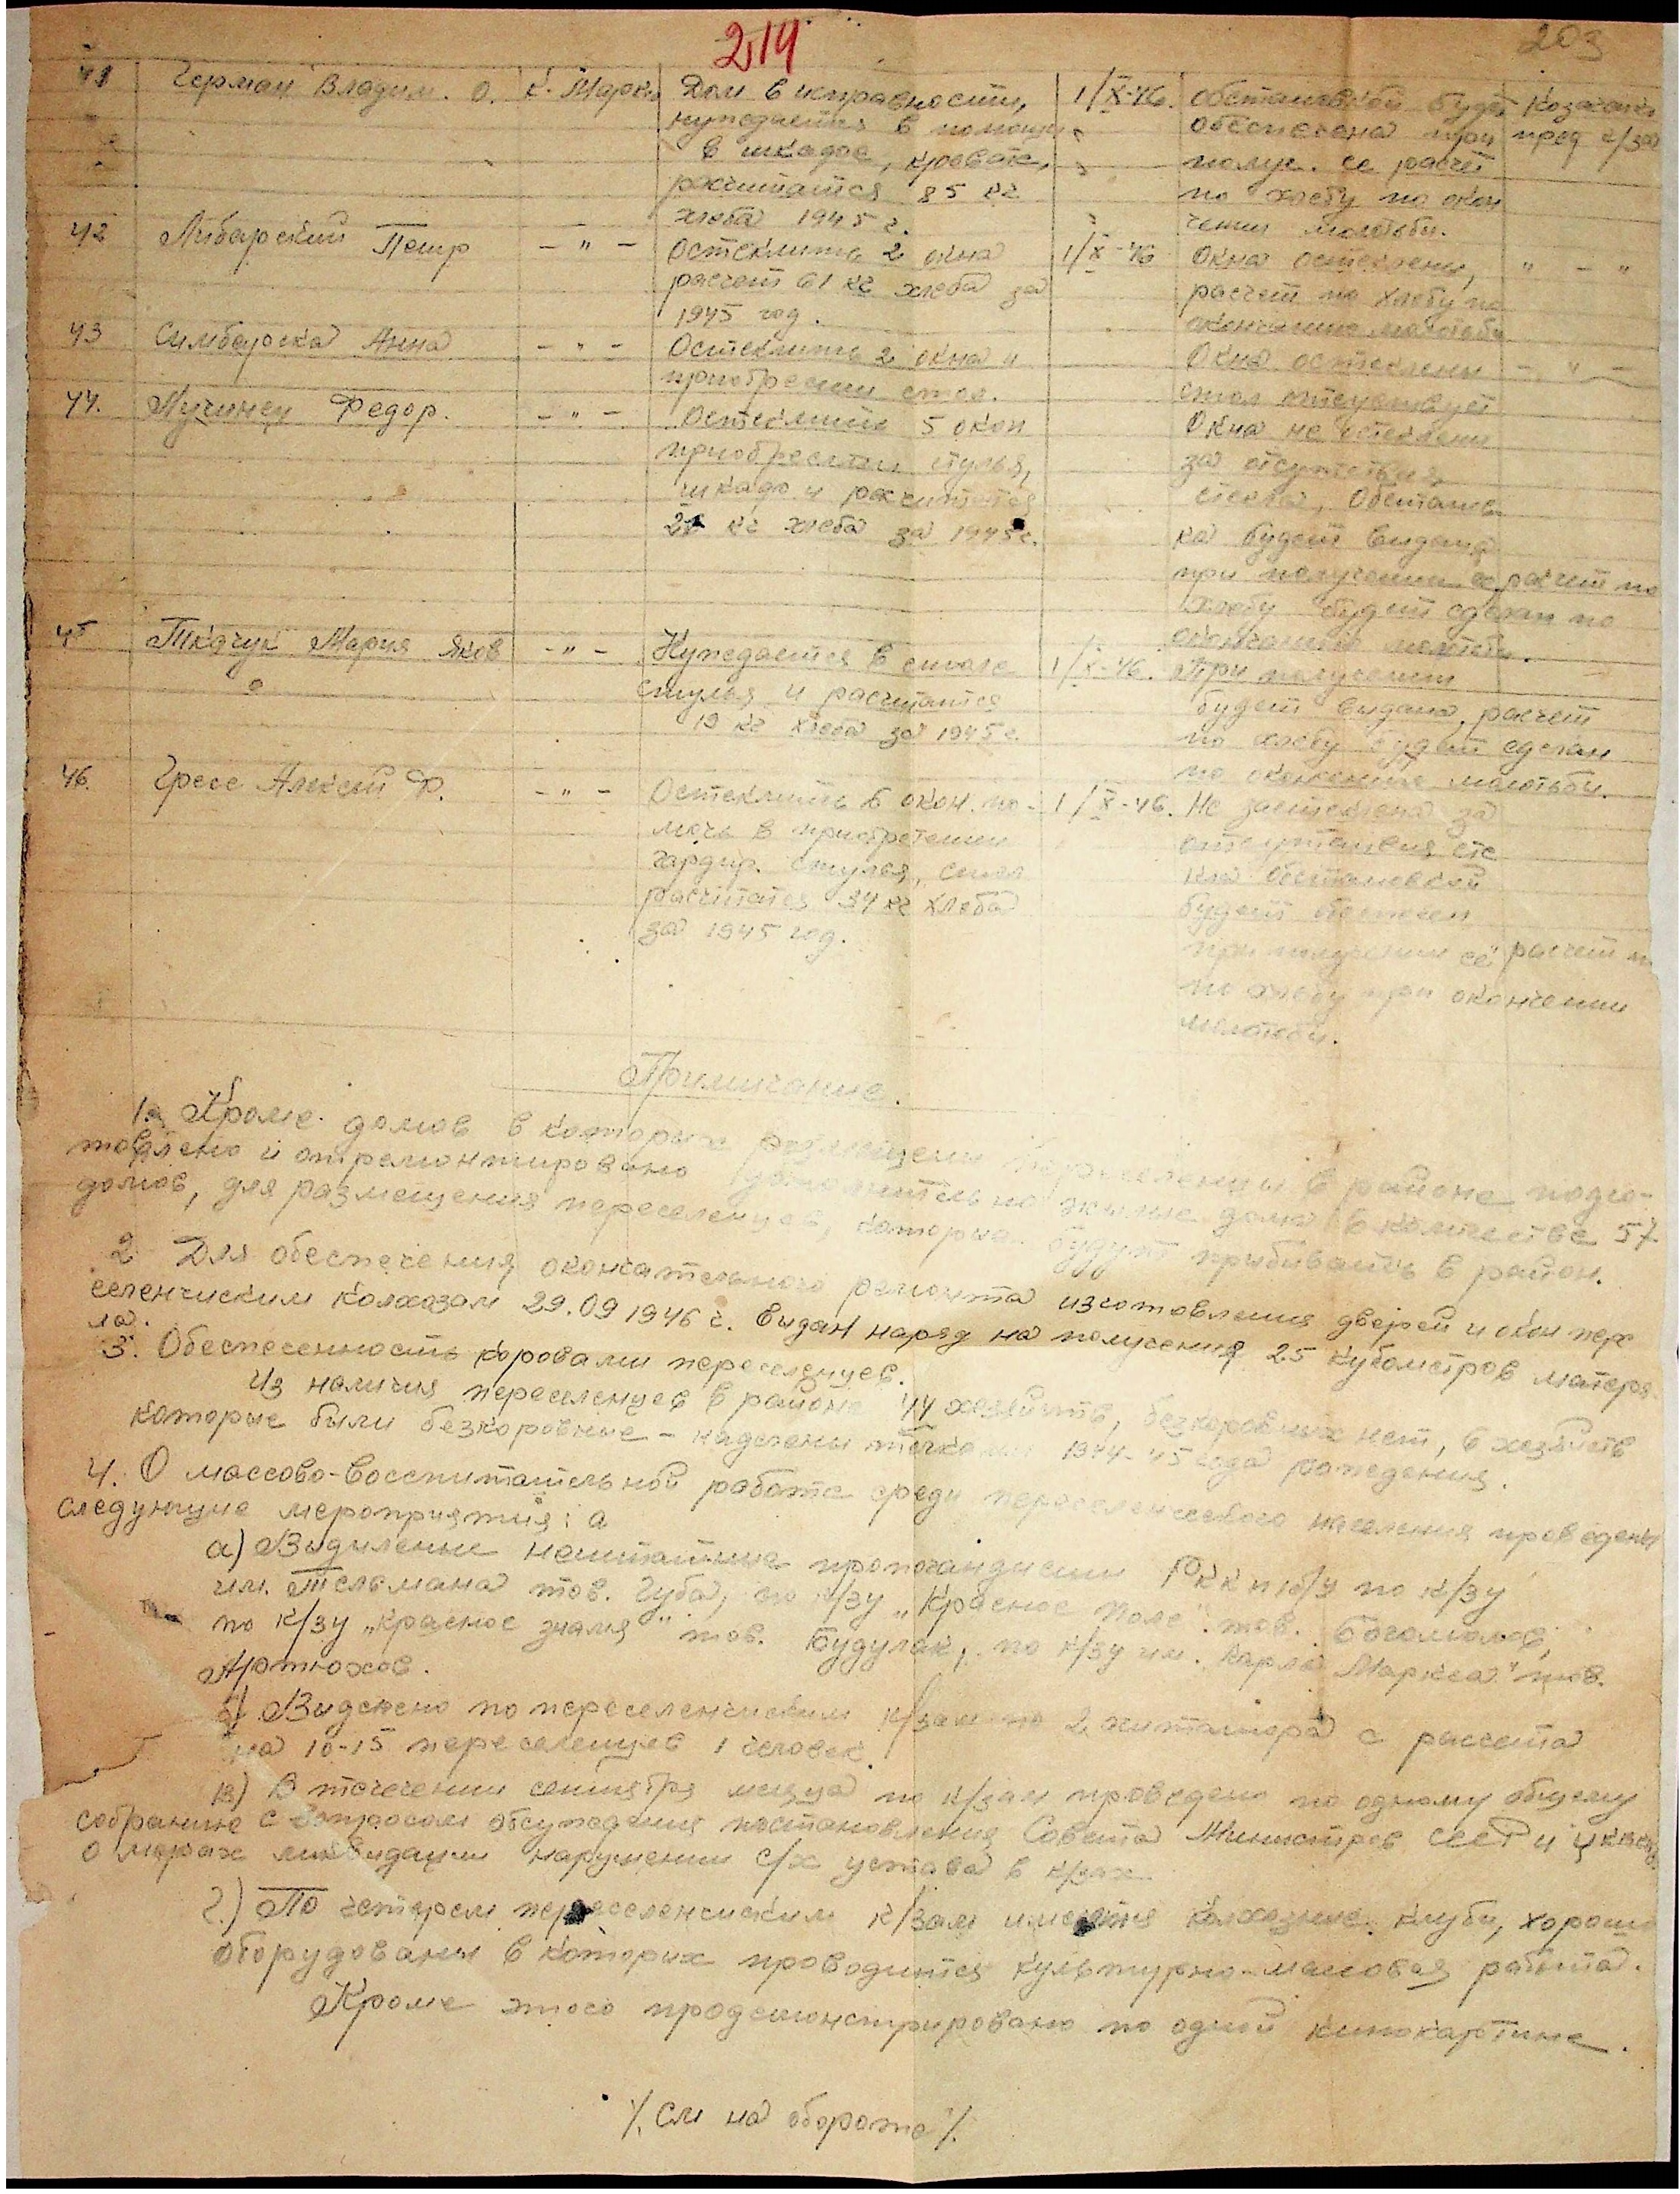 214
203
41 Герман Владим. О. К. Маркса Дом в исправности, 1/X-46. обстановкой будет
нуждается в помощи обеспечена при пред к/за
в шкафе, кровате, получ. ее расчет
расчитатся 85 кг по хлебу по окон
хлеба 1945 г. чении молотьбы.
42 Либарский Петр — " — Остеклить 2 окна 1/X-46 Окна остеклены, " — "
расчет 61 кг хлеба за расчет по хлебу по
1945 год. окончание молотьбы
43 Симбирска Анна — " — Остеклить 2 окна и Окна остеклены — " —
приобрести стол. стол отсутствует
44. Лучинец Федор. — " — Остеклить 5 окон Окна не остеклены
приобрести стулья, за отсутствия
шкафа и расчитатся стекла, Обстанов
кг хлеба за 1945 г. ка будет выдана
при получении расчет по
хлебу будет сделан по
окончании молотьбы.
45 Ткачук Мария Яков — " — Нуждается в столе 1/X-46. При получении
стулья и расчитатся будет выдана, расчет
19 кг хлеба за 1945 г. по хлебу будет сделан
по окончение молотьбы.
46. Гресе Алексей Ф. — " — Остеклить 6 окон. по- 1/X-46. Не застеклена за
мочь в приобретении отсутствия сте
гардир. стулья, стол кла обстановкой
расчитатся 34 кг хлеба будет обеспечен
за 1945 год. при получении её расчет
по хлебу при окончении
молотьбы.
Примичание.
1. Кроме домов в которых размещены переселенцы в районе подго-
товлено и отремонтировано дополнительно жилые дома в количестве 57
домов, для размещения переселенцев, которые будут прибывать в район.
2 Для обеспечения окончательного ремонта изготовления дверей и окон пере
селенчиским колхозам 29.09 1946 г. выдан наряд на получения 25 кубометров матери-
ла.
3. Обеспеченность коровами переселенцев.
Из наличия переселенцев в районе 44 хозяйств, безкоровных нет, 6 хозяйств
которые были безкоровные – наделены телками 1944-45 года рождения.
4. О массово-воспитательной работе среди переселенческого населения проведены
следующие мероприятия: а
а) Выдиленые нештатные пропогандисты РК КП/б/У по к/зу
им. Тельмана тов. Губа, по к/зу „Красное поле" тов. Богомолов,
по к/зу „Красное знамя" тов. Будулак, по к/зу им. Карла Маркса" тов.
Артюхов.
б) Выделено по переселенчиским к/зам по 2 читатора с рассета
на 10-15 переселенцев 1 человек.
в) В течении сентября месяца по к/зам проведено по одному общему
собрание с вопросом обсуждения постановления Совета Министров СССР и ЦК ВКП/б/
о мерах ликвидации нарушении с/х устава в к/зах
г.) По четырем переселенчиским к/зам имеются колхозные клубы, хорошо
оборудованы в которых проводится культурно-массовая работа.
Кроме этого продемонстрировано по одной кинокартине.
/. См на обороте /.